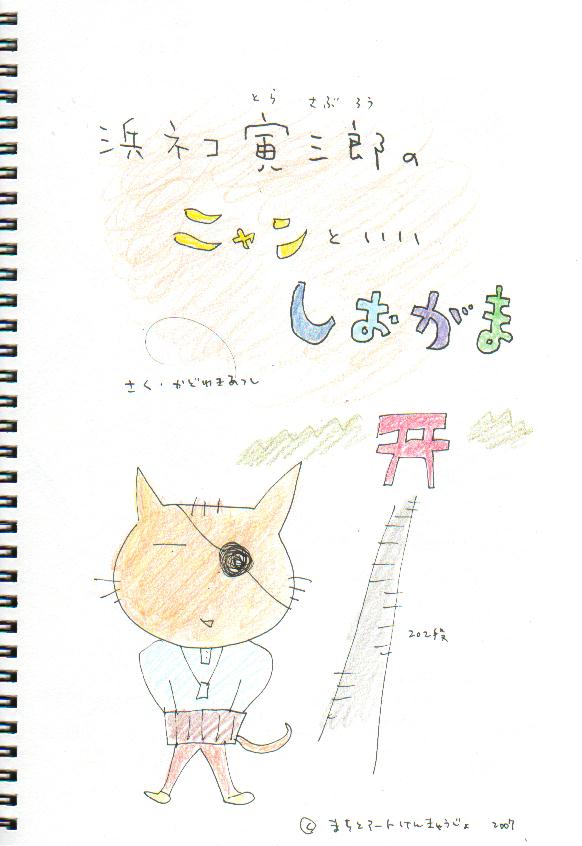 とら さぶろう
浜ネコ寅三郎の
ニャンといいい
しおがま
さく・かどわきあつし
202段
© まちとアートけんきゅうじょ 2007